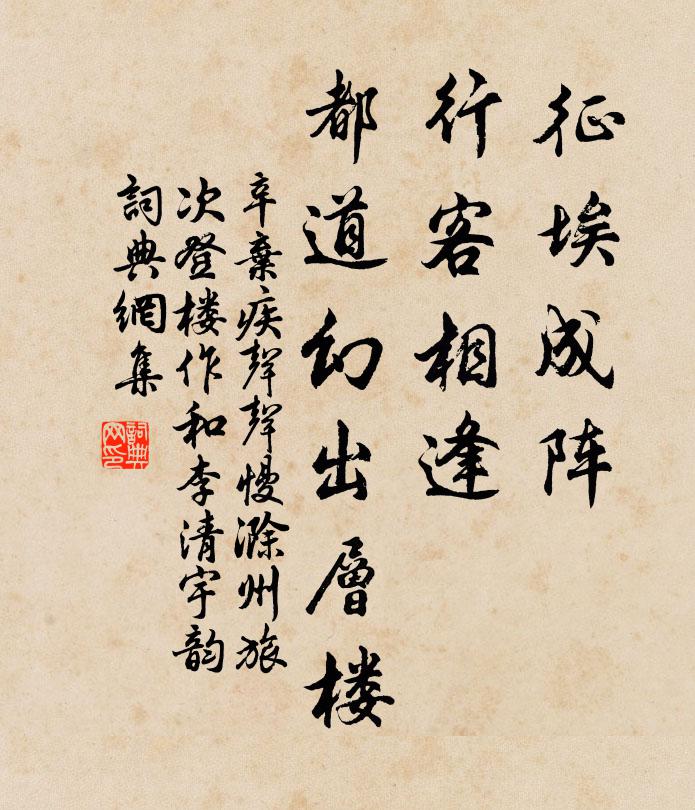 征埃成阵
行客相逢
都道幻出層楼
辛棄疾聲聲慢滁州旅
次登楼作和李清宇韵
詞典網集
詞典网印